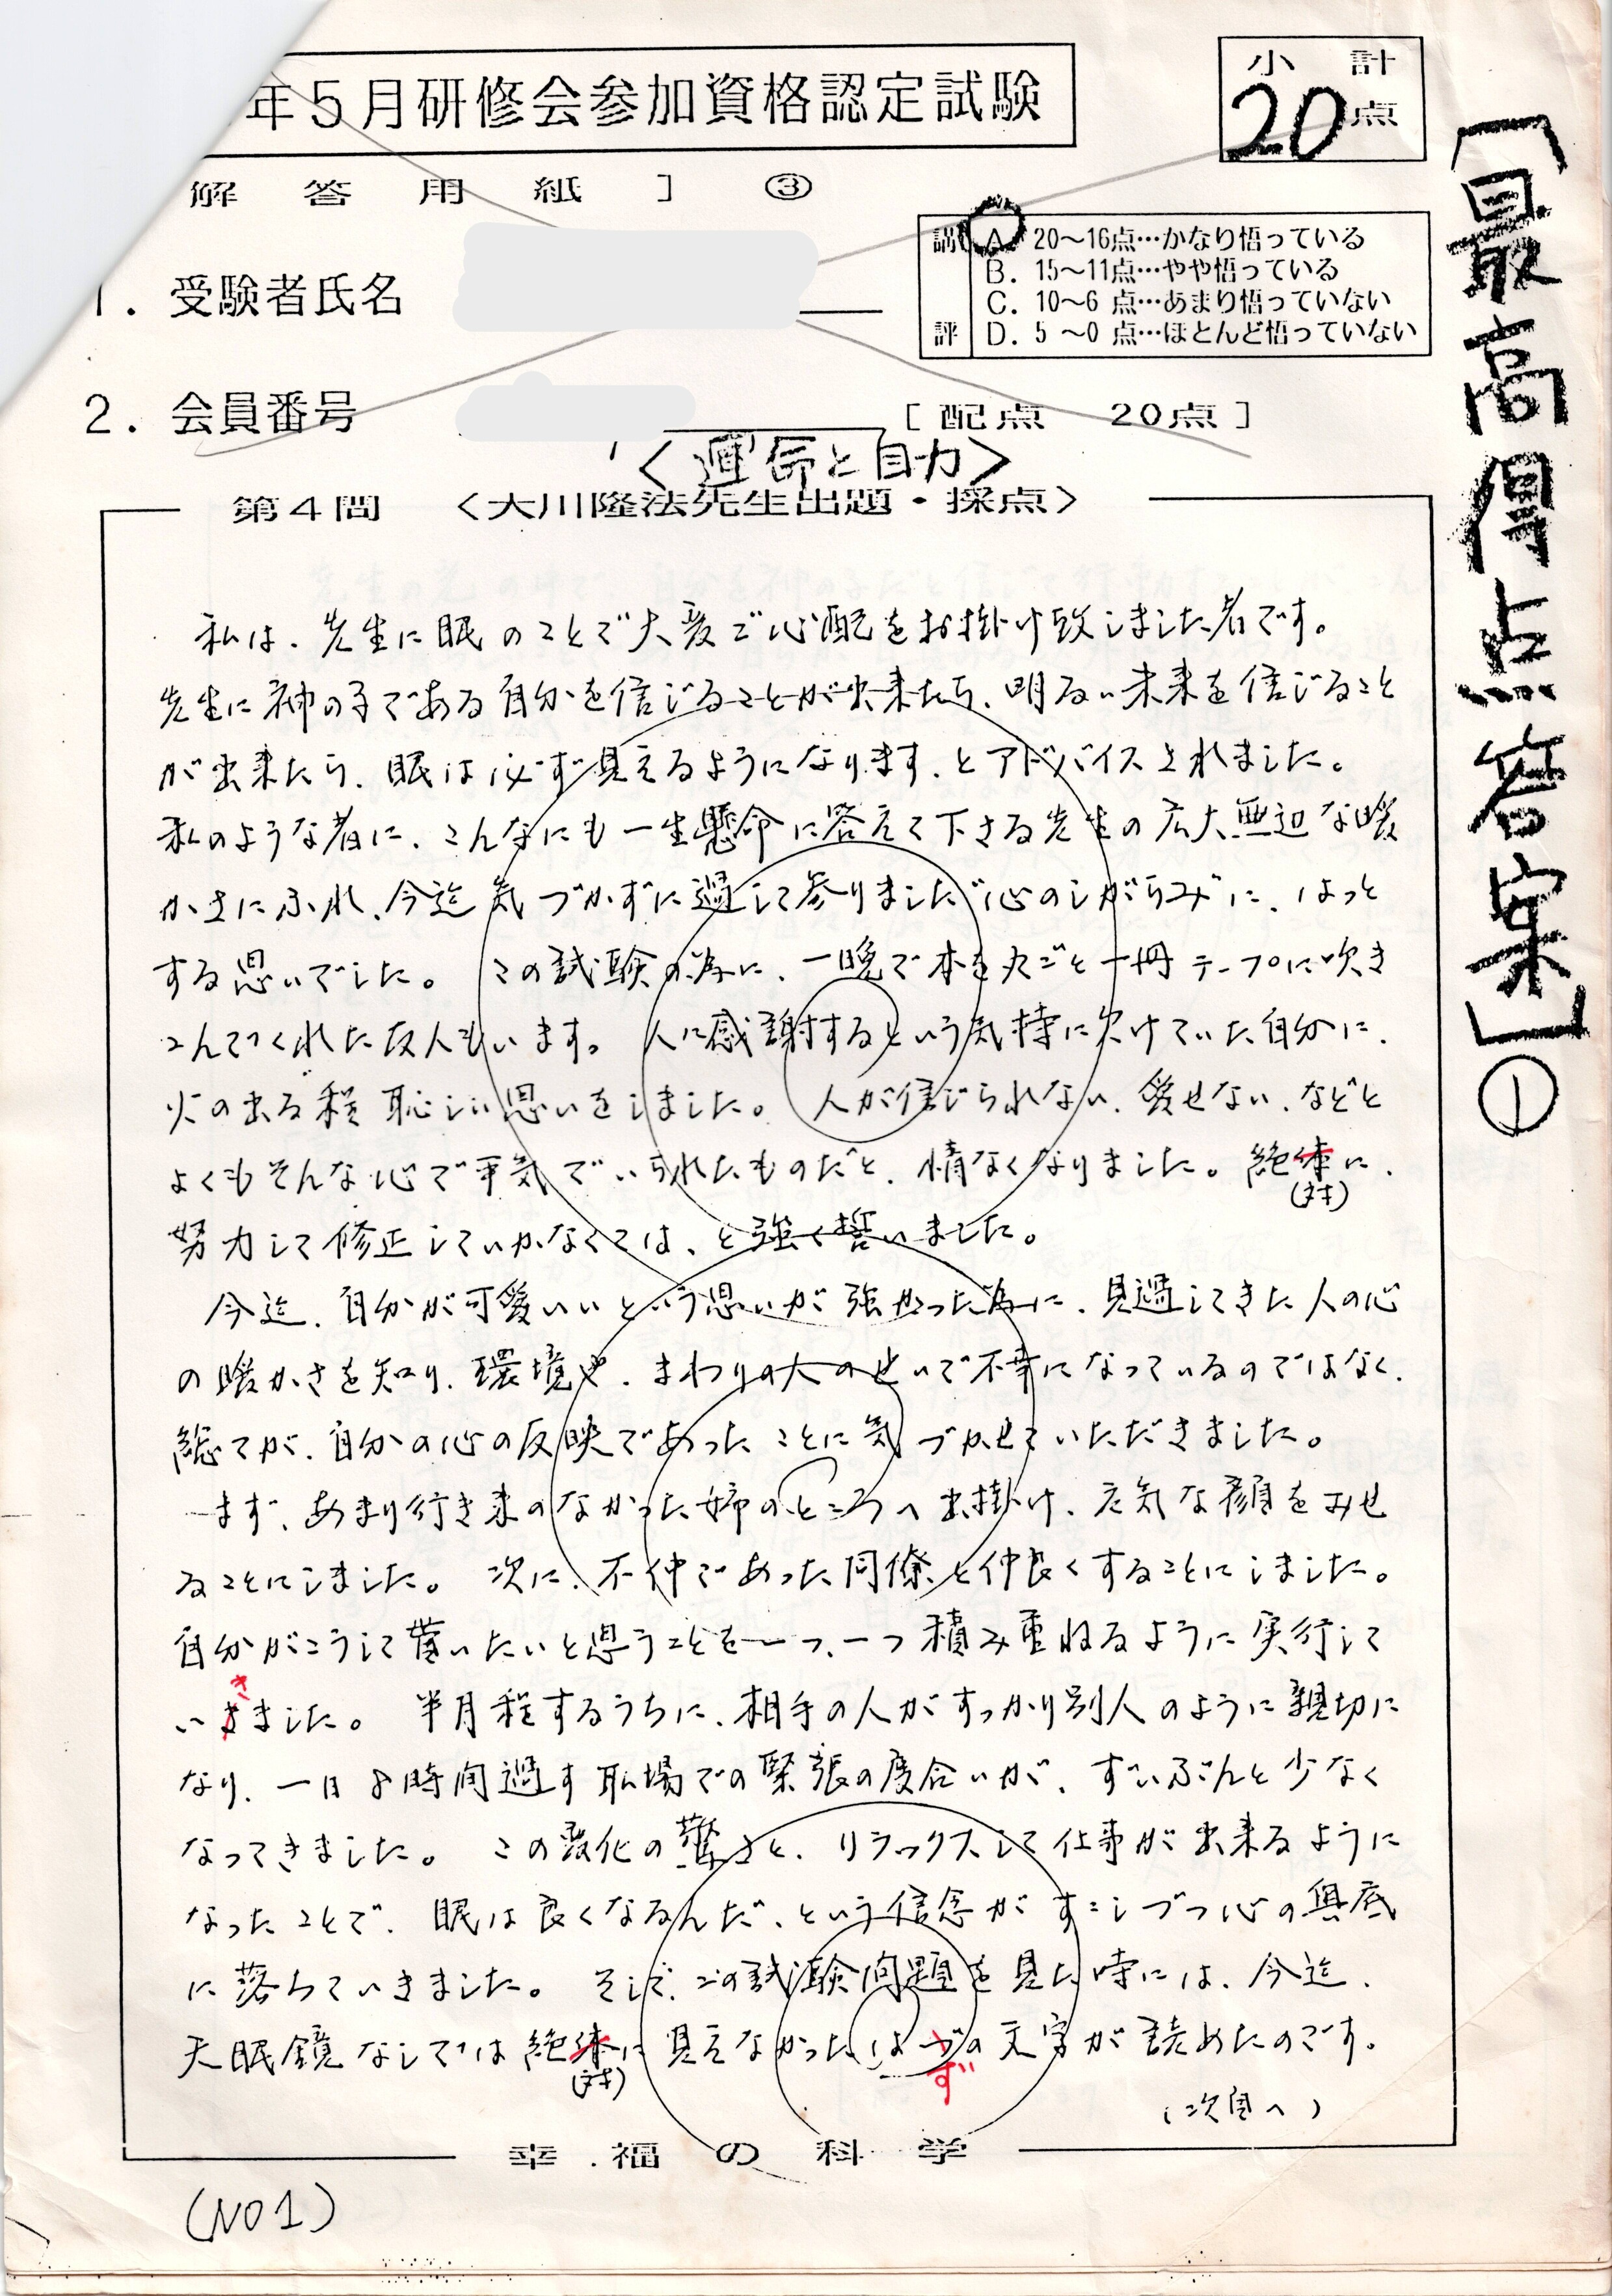 年5月研修会参加資格認定試験
小計
20点
解答用紙］ ③
講評
A. 20～16点…かなり悟っている
B. 15～11点…やや悟っている
C. 10～6 点…あまり悟っていない
D. 5 ～0 点…ほとんど悟っていない
1. 受験者氏名
2. 会員番号
［配点 20点］
〈運命と自力〉
第4問 〈大川隆法先生出題・採点〉
「最高得点答案」①
私は、先生に眼のことで大変ご心配をお掛け致しました者です。
先生に神の子である自分を信じることが出来たら、明るい未来を信じること
が出来たら、眼は必ず見えるようになります、とアドバイスされました。
私のような者に、こんなにも一生懸命に答えて下さる先生の広大無辺な暖
かさにふれ、今迄気づかずに過して参りました“心のしがらみ”に、はっと
する思いでした。 この試験の為に、一晩で本を丸ごと一冊テープに吹き
こんでくれた友人もいます。 人に感謝するという気持に欠けていた自分に、
火の出る程恥しい思いをしました。 人が信じられない、愛せない、などと
よくもそんな心で平気でいられたものだと、情なくなりました。絶体に、
(対)
努力して修正していかなくては、と強く誓いました。
今迄、自分が可愛いいという思いが強かった為に、見過してきた人の心
の暖かさを知り、環境や、まわりの人のせいで不幸になっているのではなく、
総てが、自分の心の反映であったことに気づかせていただきました。
まず、あまり行き来のなかった姉のところへ出掛け、元気な顔をみせ
ることにしました。 次に、不仲であった同僚と仲良くすることにしました。
自分がこうして貰いたいと思うことを一つ、一つ積み重ねるように実行して
いきました。 半月程するうちに、相手の人がすっかり別人のように親切に
なり、一日8時間過す職場での緊張の度合いが、ずいぶんと少なく
なってきました。 この変化の驚きと、リラックスして仕事が出来るように
なったことで、眼は良くなるんだ、という信念がすこしづつ心の奥底
に落ちていきました。 そして、この試験問題を見た時には、今迄、
天眼鏡なしでは絶体に見えなかったはづの文字が読めたのです。
(対)
ず
(次頁へ)
幸福の科学
(NO1)